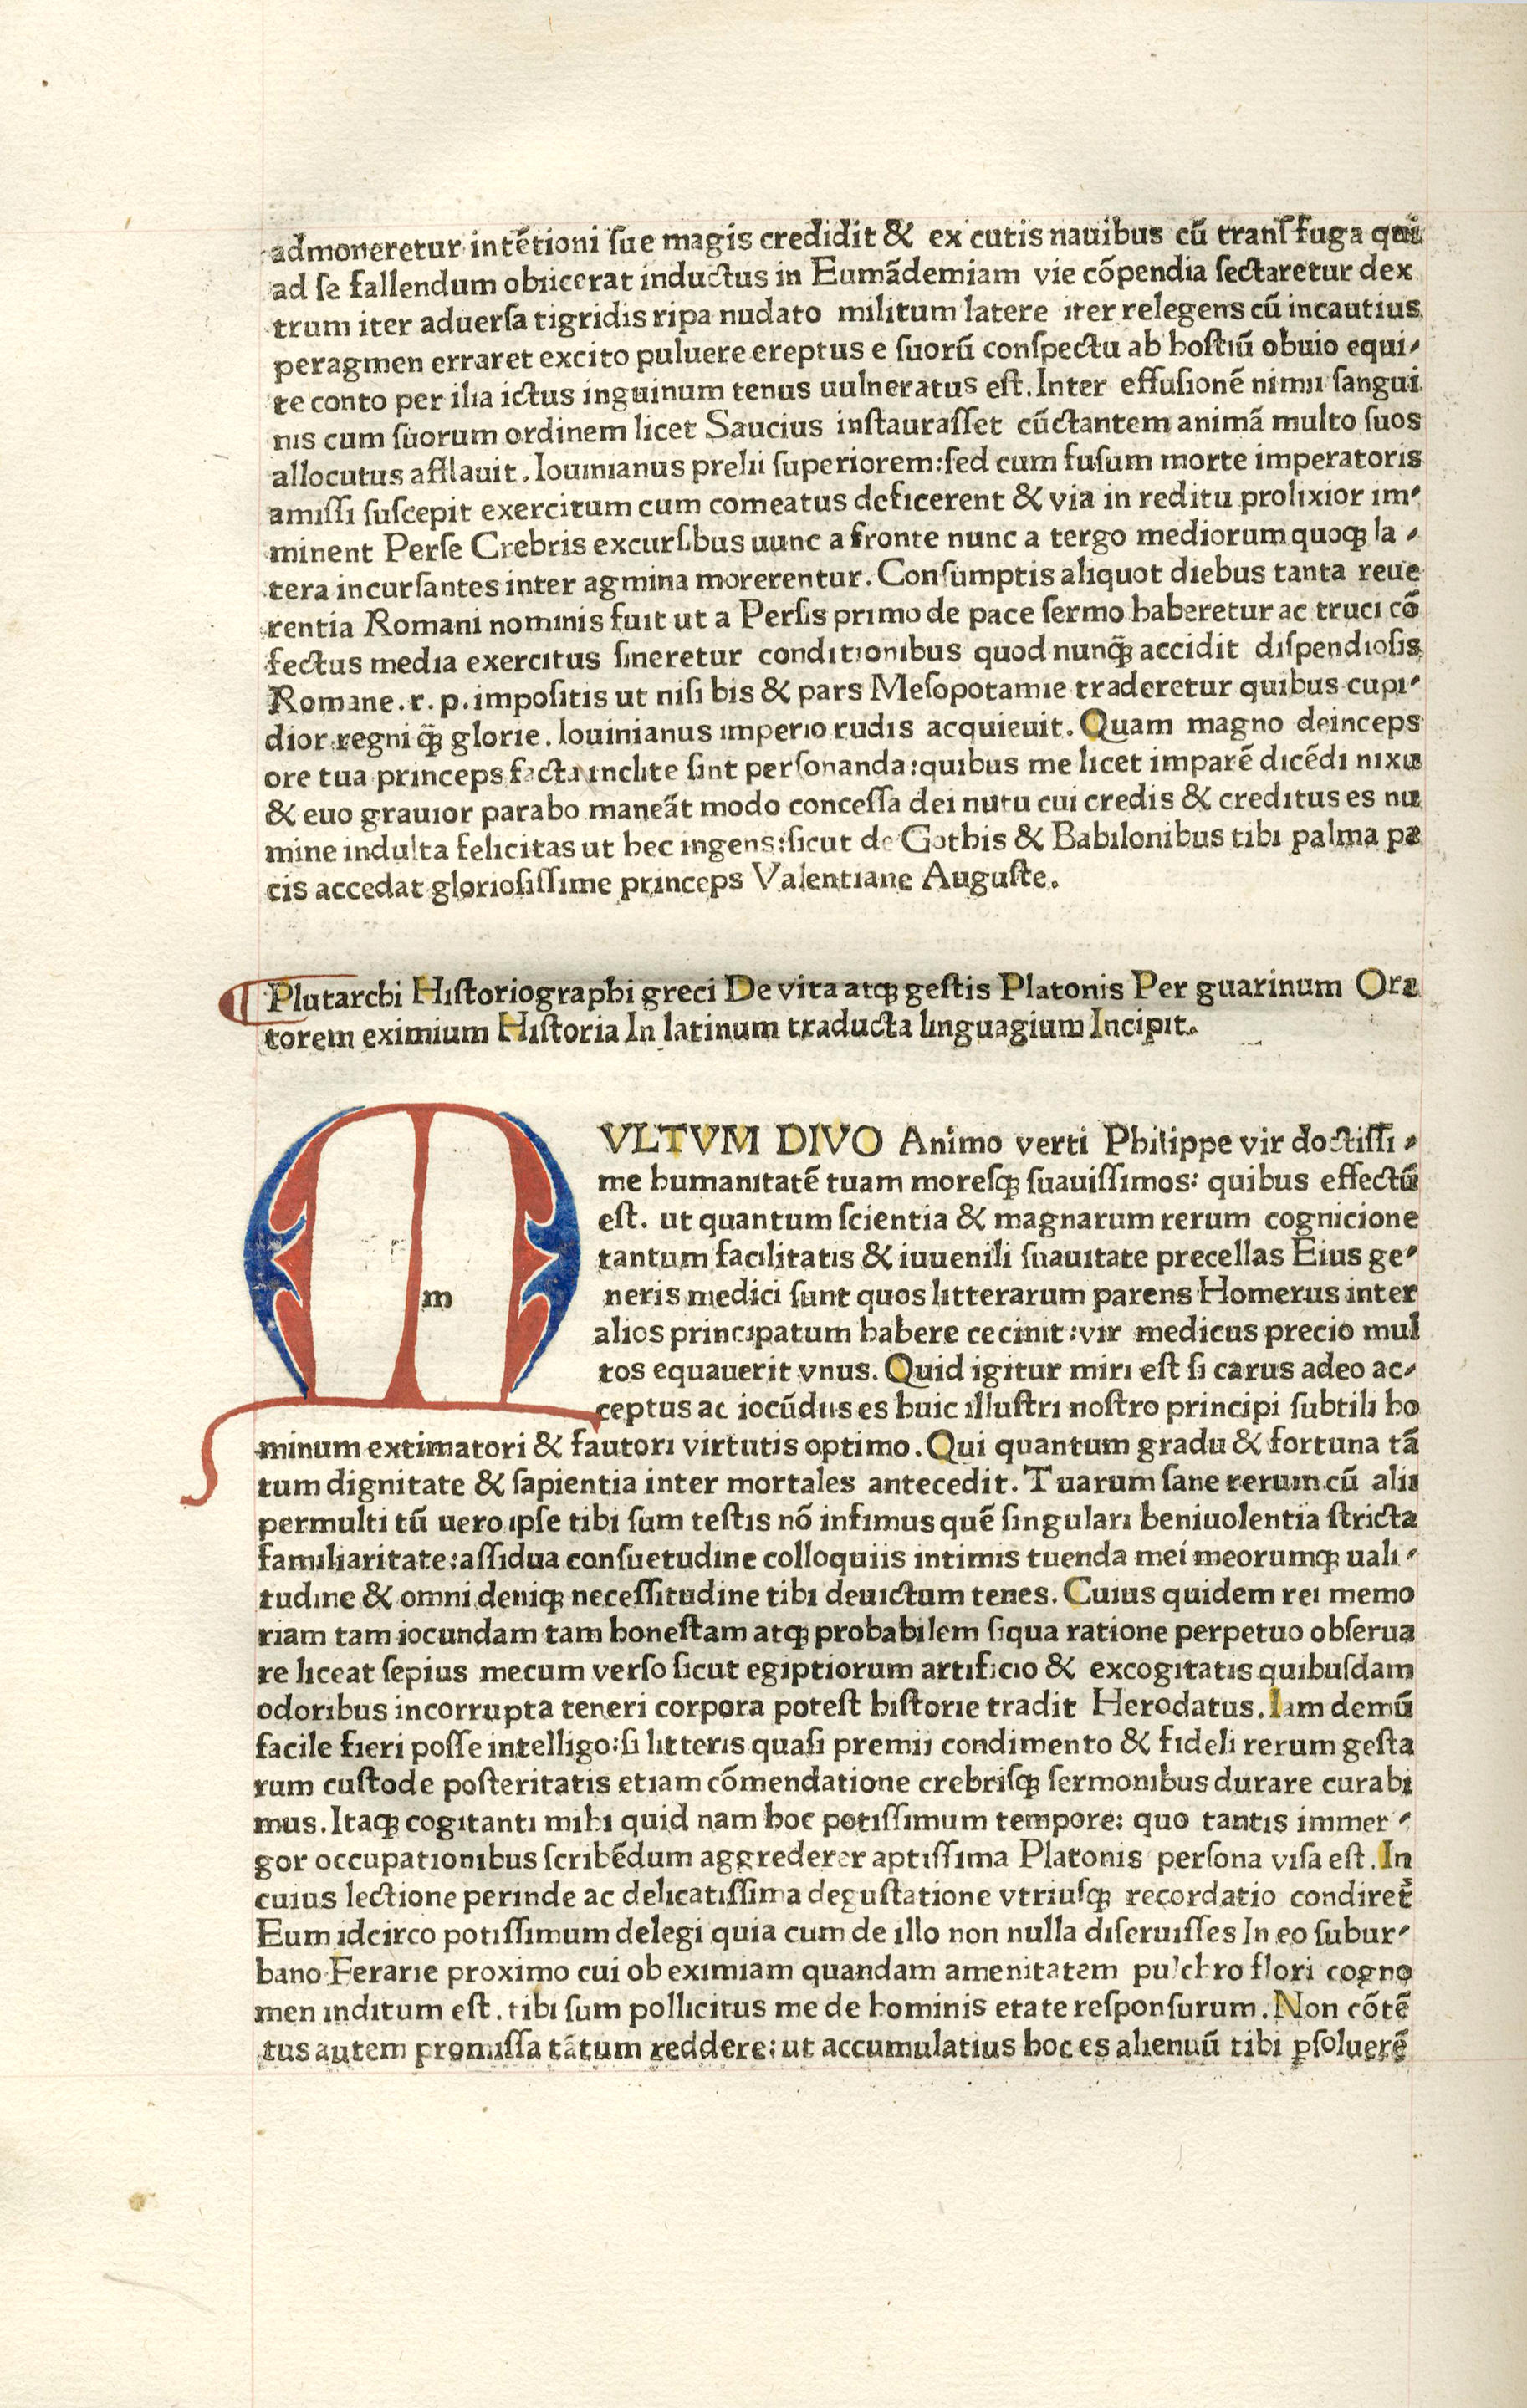 admoneretur intētioni sue magis credidit & ex cutis nauibus cū transfuga qui
ad se fallendum obiicerat inductus in Eumādemiam vie cōpendia sectaretur dex
trum iter aduersa tigridis ripa nudato militum latere iter relegens cū incautius
peragmen erraret excito puluere ereptus e suorū conspectu ab hostiū obuio equi⸗
te conto per ilia ictus inguinum tenus uulneratus est. Inter effusionē nimii sangui
nis cum suorum ordinem licet Saucius instaurasset cūctantem animā multo suos
allocutus afflauit. Iouinianus prelii superiorem: sed cum fusum morte imperatoris
amissi suscepit exercitum cum comeatus deficerent & via in reditu prolixior im⸗
minent Perse Crebris excursibus uunc a fronte nunc a tergo mediorum quoqꝫ la⸗
tera incursantes inter agmina morerentur. Consumptis aliquot diebus tanta reue
rentia Romani nominis fuit ut a Persis primo de pace sermo haberetur ac truci cō
fectus media exercitus sineretur conditionibus quod nunq̄ꝫ accidit dispendiosis
Romane. r. p. impositis ut nisi bis & pars Mesopotamie traderetur quibus cupi⸗
dior regni q̄ꝫ glorie. Iouinianus imperio rudis acquieuit. Quam magno deinceps
ore tua princeps facta inclite sint personanda: quibus me licet imparē dicēdi nixu
& euo grauior parabo maneāt modo concessa dei nutu cui credis & creditus es nu
mine indulta felicitas ut hec ingens: sicut de Gothis & Babilonibus tibi palma pa
cis accedat gloriosissime princeps Valentiane Auguste.
¶ Plutarchi Historiographi greci De vita atqꝫ gestis Platonis Per guarinum Ora
torem eximium Historia In latinum traducta linguagium Incipit.
M m VLTVM DIVO Animo verti Philippe vir doctissi⸗
me humanitatē tuam moresqꝫ suauissimos: quibus effectū
est. ut quantum scientia & magnarum rerum cognicione
tantum facilitatis & iuuenili suauitate precellas Eius ge⸗
neris medici sunt quos litterarum parens Homerus inter
alios principatum habere cecinit: vir medicus precio mul
tos equauerit vnus. Quid igitur miri est si carus adeo ac⸗
ceptus ac iocūdus es huic illustri nostro principi subtili ho
minum extimatori & fautori virtutis optimo. Qui quantum gradu & fortuna tā
tum dignitate & sapientia inter mortales antecedit. Tuarum sane rerum cū alii
permulti tū uero ipse tibi sum testis nō infimus quē singulari beniuolentia stricta
familiaritate: assidua consuetudine colloquiis intimis tuenda mei meorumqꝫ uali⸗
tudine & omni deniqꝫ necessitudine tibi deuictum tenes. Cuius quidem rei memo
riam tam iocundam tam honestam atqꝫ probabilem siqua ratione perpetuo obserua
re liceat sepius mecum verso sicut egiptiorum artificio & excogitatis quibusdam
odoribus incorrupta teneri corpora potest historie tradit Herodatus. Iam demū
facile fieri posse intelligo: si litteris quasi premii condimento & fideli rerum gesta
rum custode posteritatis etiam cōmendatione crebrisqꝫ sermonibus durare curabi
mus. Itaqꝫ cogitanti mihi quid nam hoc potissimum tempore: quo tantis immer⸗
gor occupationibus scribēdum aggrederer aptissima Platonis persona visa est. In
cuius lectione perinde ac delicatissima degustatione vtriusqꝫ recordatio condiret̄
Eum idcirco potissimum delegi quia cum de illo non nulla diseruisses In eo subur⸗
bano Ferarie proximo cui ob eximiam quandam amenitatem pulchro flori cogno
men inditum est. tibi sum pollicitus me de hominis etate responsurum. Non cōtē
tus autem promissa tātum reddere: ut accumulatius hoc es alienuū tibi ꝑsoluerē